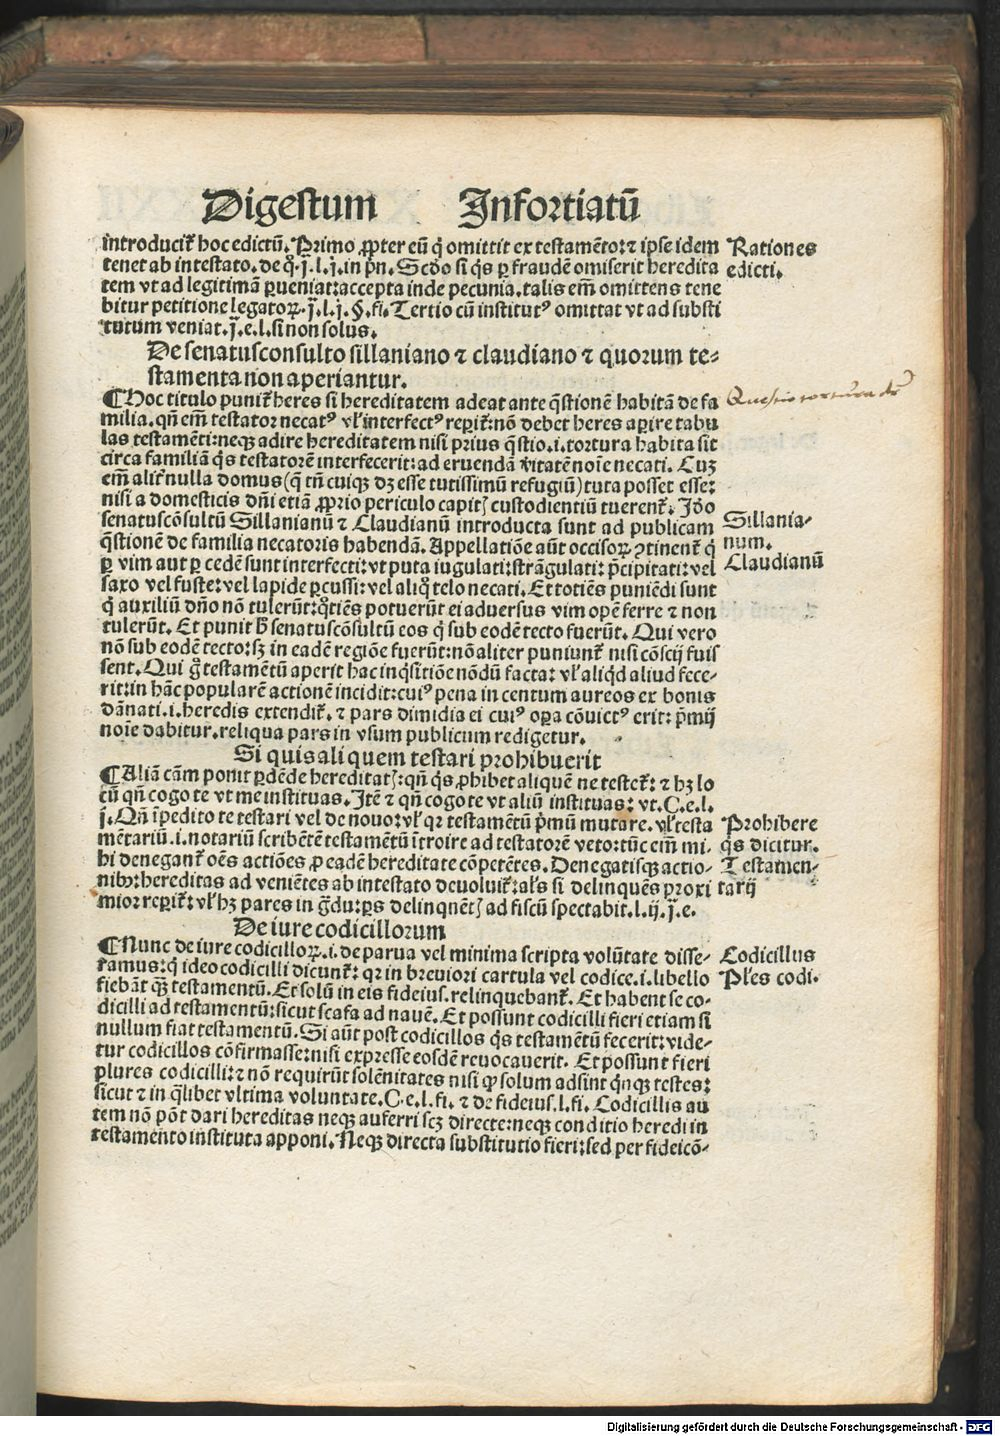 Digestum Infortiatū
introducit᷑ hoc edictū. Primo ꝓpter eū q̇ omittit ex testamēto: ⁊ ipse idem
tenet ab intestato. de q̊. j. l. j. in pn̄. Scd̓o si q̇s ꝑ fraudē omiserit heredita
tem vt ad legitimā ꝑueniat: accepta inde pecunia. talis em̄ omittens tene
bitur petitione legatoꝝ. j. l. j. §. fi. Tertio cū institutꝰ omittat vt ad substi
tutum veniat. j. e. l. si non solus.
Rationes
edicti.
De senatusconsulto sillaniano ⁊ claudiano ⁊ quorum te-
stamenta non aperiantur.
¶Hoc titulo punit᷑ heres si hereditatem adeat ante q̄stionē habitā de fa
milia. qn̄ em̄ testator necatꝰ vl̓ interfectꝰ reꝑit᷑: nō debet heres aꝑire tabu
las testamēti: neqꝫ adire hereditatem nisi prius q̄stio. i. tortura habita sit
circa familiā q̇s testatorē interfecerit: ad eruendā v̓itatē noīe necati. Cuꝫ
em̄ alit᷑ nulla domus (q̄ tn̄ cuiqꝫ dꝫ esse tutissimū refugiū) tuta posset esse:
nisi a domesticis dn̄i etiā ꝓprio periculo capitꝭ custodientiū tuerent᷑. Jd̓o
senatuscōsultū Sillanianū ⁊ Claudianū introducta sunt ad publicam
q̄stionē de familia necatoris habendā. Appellatiōe aūt occisoꝝ ꝯtinent᷑ q̇
ꝑ vim aut ꝑ cedē sunt interfecti: vt puta iugulati: strāgulati: p̄cipitati: vel
saxo vel fuste: vel lapide ꝑcussi: vel aliq̊ telo necati. Et totiēs puniēdi sunt
q̇ auxiliū dn̄o nō tulerūt: q̊tiēs potuerūt ei aduersus vim opē ferre ⁊ non
tulerūt. Et punit h̓ senatuscōsultū eos q̇ sub eodē tecto fuerūt. Qui vero
nō sub eodē tecto: sꝫ in eadē regiōe fuerūt: nō aliter puniunt᷑ nisi cōscij fuis
sent. Qui g̊ testamētū aperit hac inq̇sitiōe nōdū facta: vl̓ aliq̇d aliud fece-
rit: in hāc popularē actionē incidit: cuiꝰ pena in centum aureos ex bonis
dānati. i. heredis extendit᷑. ⁊ pars dimidia ei cuiꝰ oꝑa cōuictꝰ erit: p̄mij
noīe dabitur. reliqua pars in vsum publicum redigetur.
Questio tortura
Sillania-
num.
Claudianū
Si quis aliquem testari prohibuerit
¶Aliā cām ponit ꝑdēde hereditatꝭ: qn̄ q̇s ꝓhibet aliquē ne testet᷑: ⁊ hꝫ lo
cū qn̄ cogo te vt me instituas. Itē ⁊ qn̄ cogo te vt aliū instituas: vt. C. e. l.
j. Qn̄ īpedito te testari vel de nouo: vl̓ qꝛ testamētū p̄mū mutare. vl̓ testa
mētariū. i. notariū scribētē testamētū ītroire ad testatorē veto: tūc em̄ mi-
hi denegant᷑ oēs actiōes ꝓ eadē hereditate cōpetētes. Denegatisqꝫ actio-
nibꝰ: hereditas ad veniētes ab intestato deuoluit᷑: al̓s si delinquēs proxi
mior reꝑit᷑: vl̓ hꝫ pares in g̊du: ꝑs delinquētꝭ ad fiscū spectabit. l. ij. j. e.
Prohibere
q̇s dicitur.
Testamen-
tarij
De iure codicillorum
¶Nunc de iure codicilloꝝ. i. de parua vel minima scripta volūtate disse-
ramus: q̇ ideo codicilli dicunt᷑: qꝛ in breuiori cartula vel codice. i. libello
fiebāt qꝫ testamentū. Et solū in eis fideius. relinquebant᷑. Et habent se co-
dicilli ad testamentū: sicut scafa ad nauē. Et possunt codicilli fieri etiam si
nullum fiat testamentū. Si aūt post codicillos q̇s testamētū fecerit: vide-
tur codicillos cōfirmasse: nisi expresse eosdē reuocauerit. Et possunt fieri
plures codicilli: ⁊ nō requirūt solēnitates nisi ꝙ solum adsint q̇nqꝫ testes:
sicut ⁊ in q̄libet vltima voluntate. C. e. l. fi. ⁊ de fideius. l. fi. Codicillis au
tem nō pōt dari hereditas neqꝫ auferri scꝫ directe: neqꝫ conditio heredi in
testamento instituta apponi. Neqꝫ directa substitutio fieri: sed per fideicō-
Codicillus
Pl̓es codi.
Digitalisierung gefördert durch die Deutsche Forschungsgemeinschaft - DFG